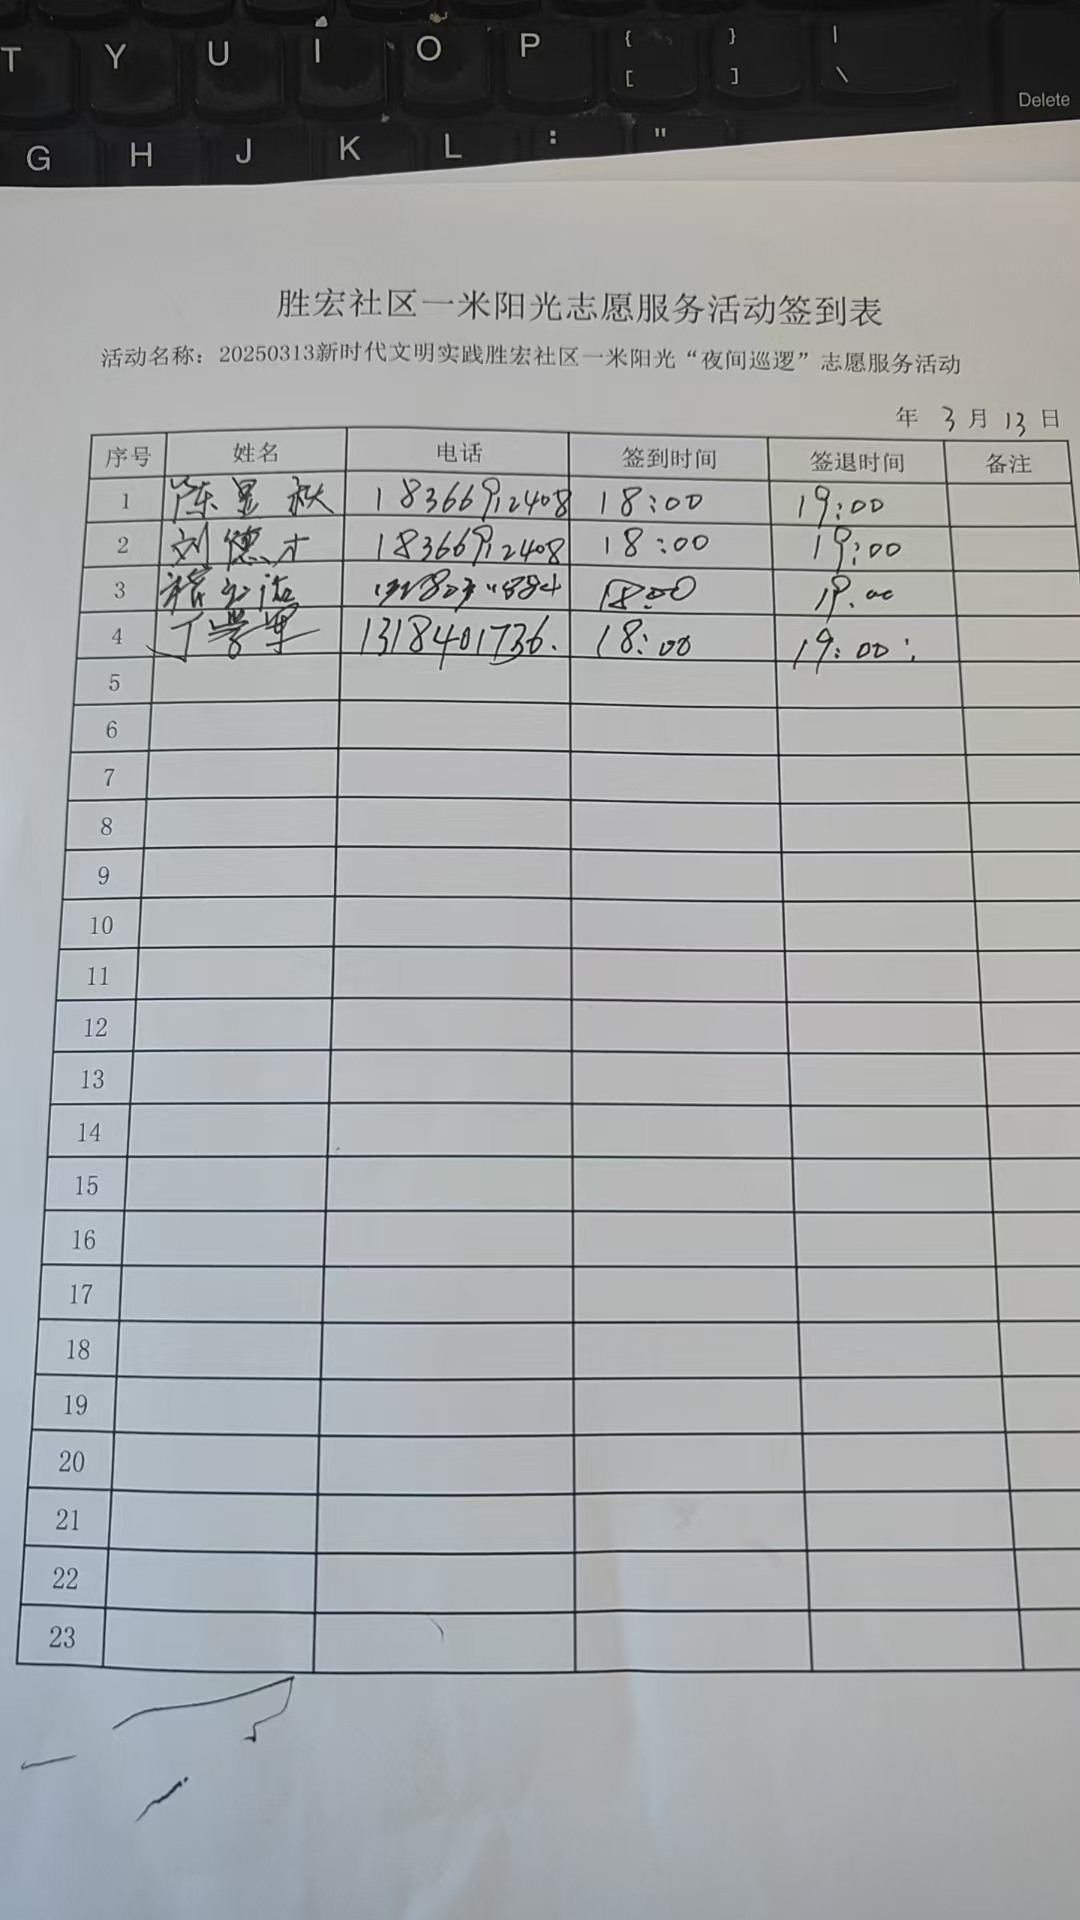 T Y U I O P { [ } ] | \ Delete
G H J K L : "
胜宏社区一米阳光志愿服务活动签到表
活动名称：20250313新时代文明实践胜宏社区一米阳光“夜间巡逻”志愿服务活动
年 3 月 13 日
序号 姓名 电话 签到时间 签退时间 备注
1 陈 秋 18366912408 18:00 19:00
2 刘德才 18366912408 18:00 19:00
3 18:00 19.00
4 丁学军 1318401736. 18:00 19:00
5
6
7
8
9
10
11
12
13
14
15
16
17
18
19
20
21
22
23